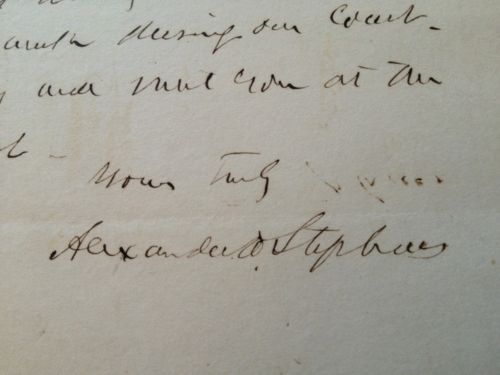 during our Court -
and meet you at the
Yours truly
Alexander H. Stephens